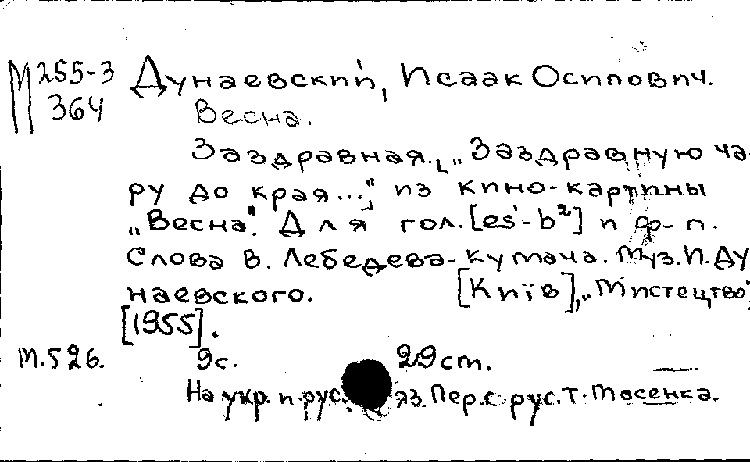 М 255-3 Дунаевский, Исаак Осипович.
364 Весна.
Заздравная. [„Заздравную ча-
ру до края...", из кино-картины
„Весна". Для гол. [es¹-b²] и ф-п.
Слова В. Лебедева-Кумача. Муз. И. Ду
наевского. [Київ], „Мистецтво",
[1955].
М.526. 9с. 29 ст.
На укр. и рус. яз. Пер. с рус. Т. Масенка.